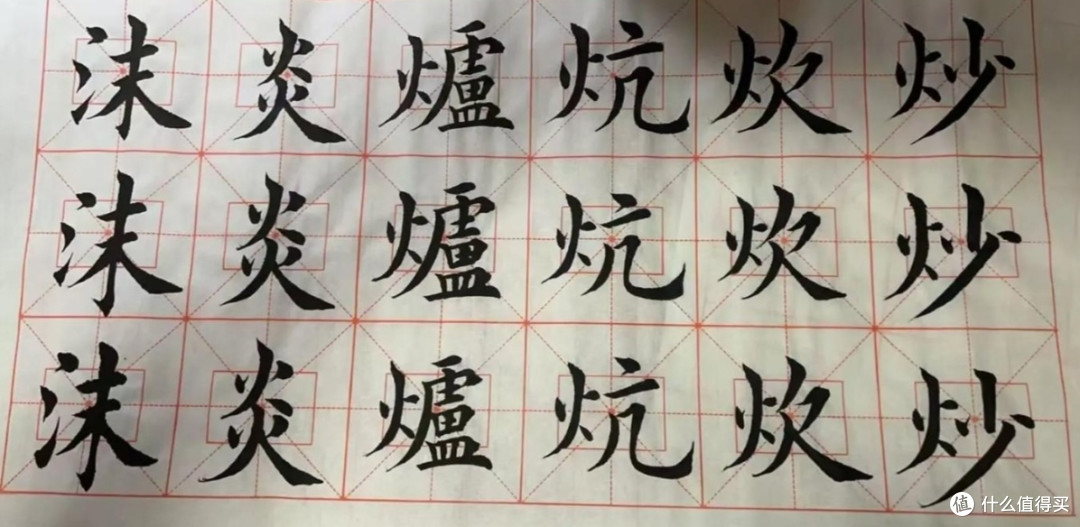 沫炎爐炕炊炒
沫炎爐炕炊炒
沫炎爐炕炊炒
值 什么值得买